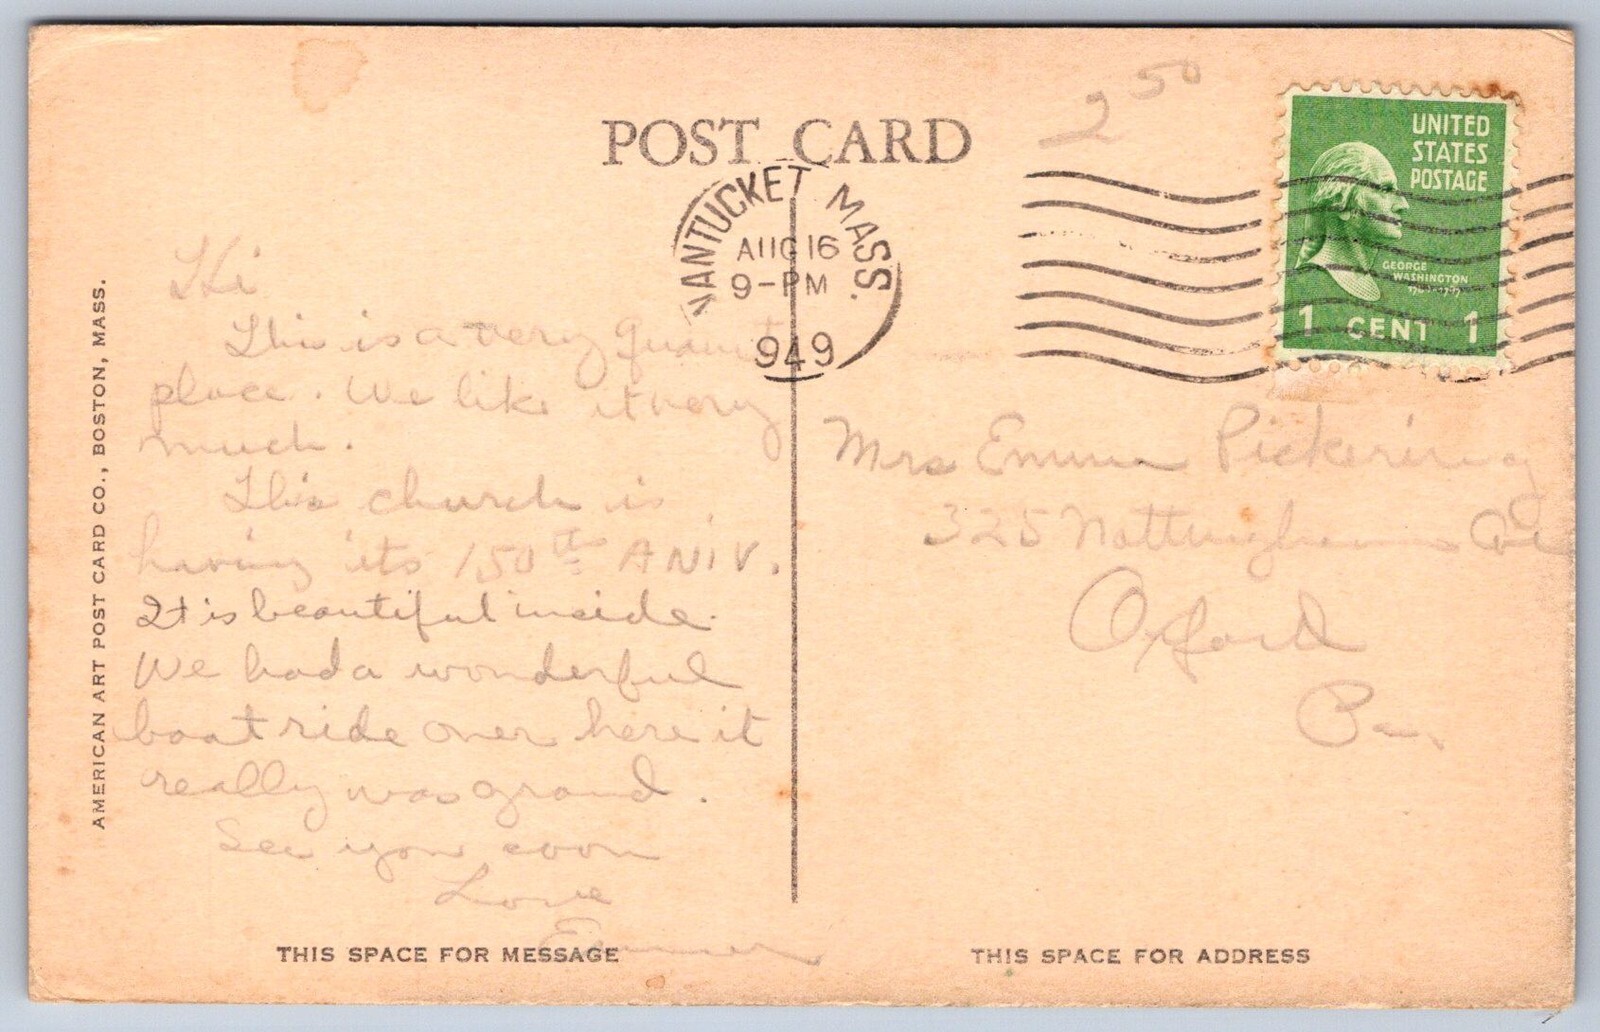 POST CARD
2 50
UNITED
STATES
POSTAGE
GEORGE
WASHINGTON
1 CENT 1
NANTUCKET MASS.
AUG 16
9-PM
949
AMERICAN ART POST CARD CO., BOSTON, MASS.
Hi
This is a very quaint
place. We like it very
much.
This church is
having its 150th ANIV.
It is beautiful inside.
We had a wonderful
boat ride over here it
really was grand.
See you soon
Love
Mrs Emma Pickering
325 Nottingham Ave
Oxford
Pa.
THIS SPACE FOR MESSAGE
THIS SPACE FOR ADDRESS